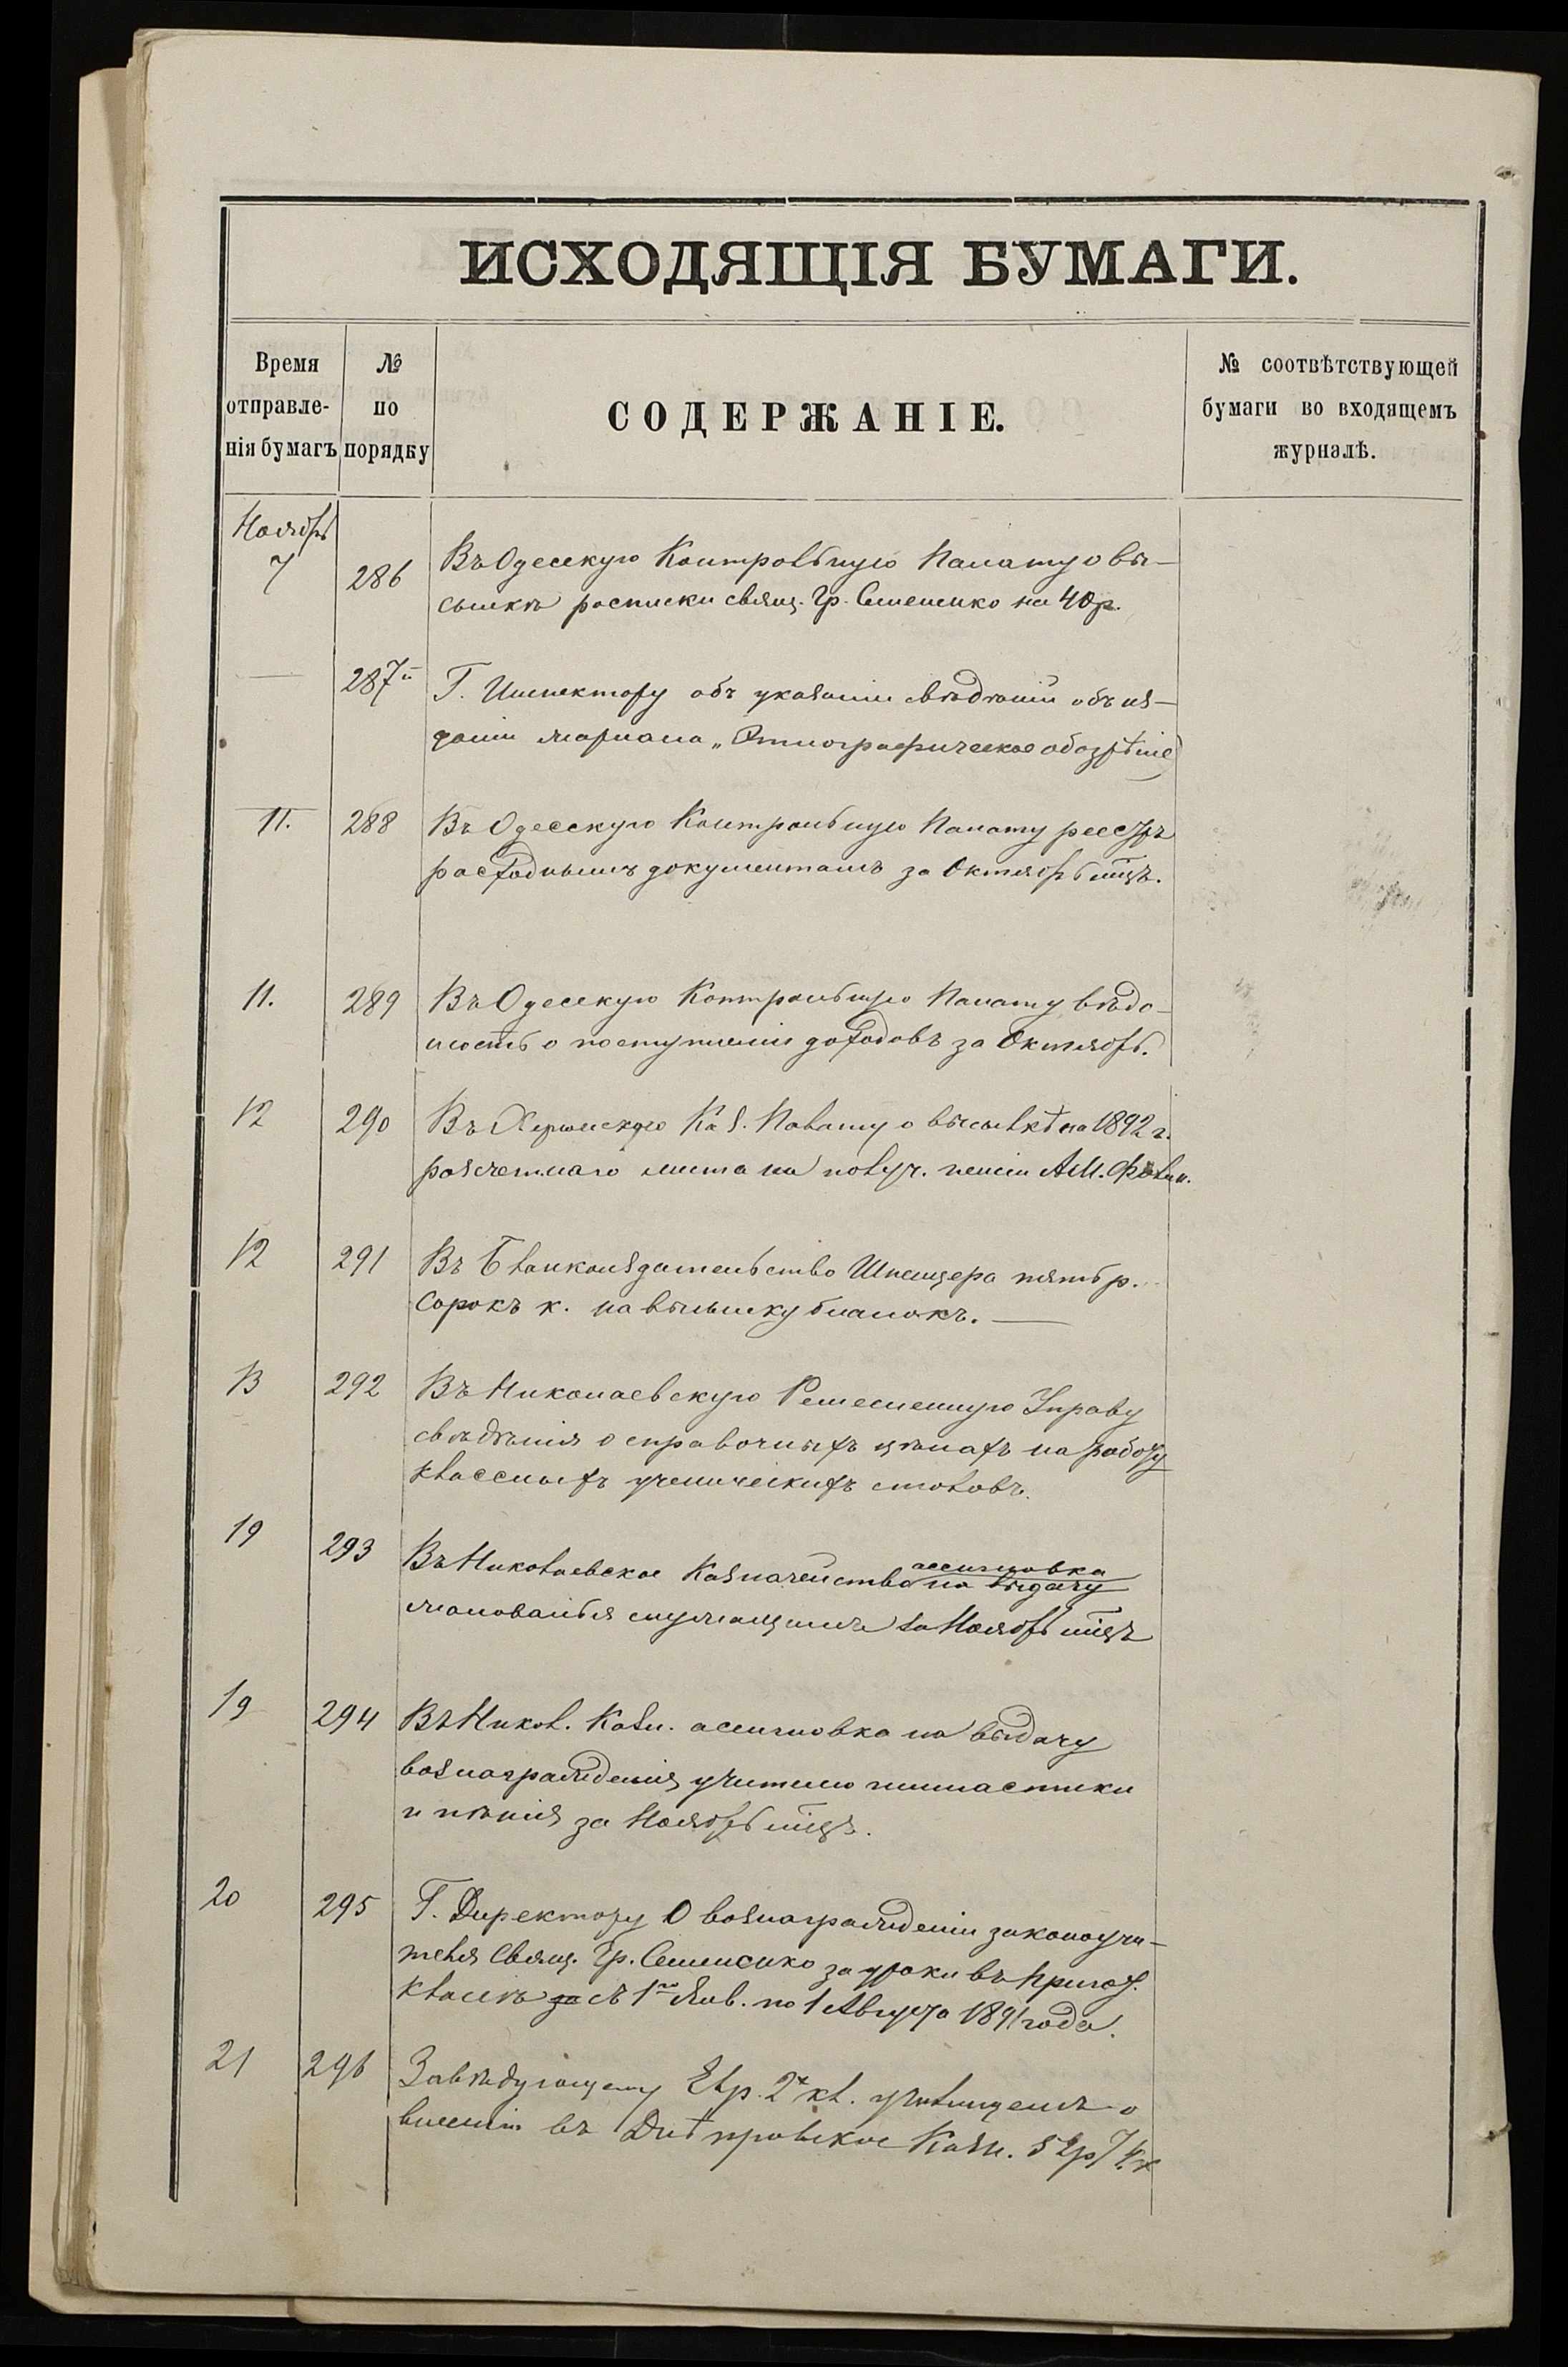 ИСХОДЯЩІЯ БУМАГИ.
Время отправле-нія бумагъ
№ по порядку
СОДЕРЖАНІЕ.
№ соотвѣтствующей бумаги во входящемъ журналѣ.
Ноябрь
7 286 Въ Одесскую Контрольную Палату о вы-
сылкѣ росписки свящ. Гр. Семененко на 40 р.
— 287 Г. Инспектору объ указаніи свѣдѣній объ из-
даніи журнала „Этнографическое обозрѣніе
11. 288 Въ Одесскую Контрольную Палату реестръ
расходнымъ документамъ за Октябрь мѣсц.
11. 289 Въ Одесскую Контрольную Палату вѣдо-
мость о поступленіи доходовъ за Октябрь.
12 290 Въ Херсонскую Каз. Палату о высылкѣ на 1892 г.
разсчетнаго листа на получ. пенсіи А.М.
12 291 Въ Бланкоиздательство Шпенцера пять р.
сорокъ к. на высылку бланокъ. —
13 292 Въ Николаевскую Ремесленную Управу
свѣдѣнія о справочныхъ цѣнахъ на работу
классныхъ ученическихъ столовъ.
19 293 Въ Николаевское Казначейство ассигновка на выдачу
жалованья служащимъ за Ноябрь мѣсц
19 294 Въ Никол. Казн. ассигновка на выдачу
вознагражденія учителю гимнастики
и пѣнія за Ноябрь мѣсц.
20 295 Г. Директору О вознагражденіи законоучи-
теля Свящ. Гр. Семененко за уроки въ пригот.
классѣ за съ 1го Янв. по 1 Августа 1891 года.
21 296 Завѣдующему Евр. 2х кл. училищемъ о
внесеніи въ Днѣпровское Казн. 52 р